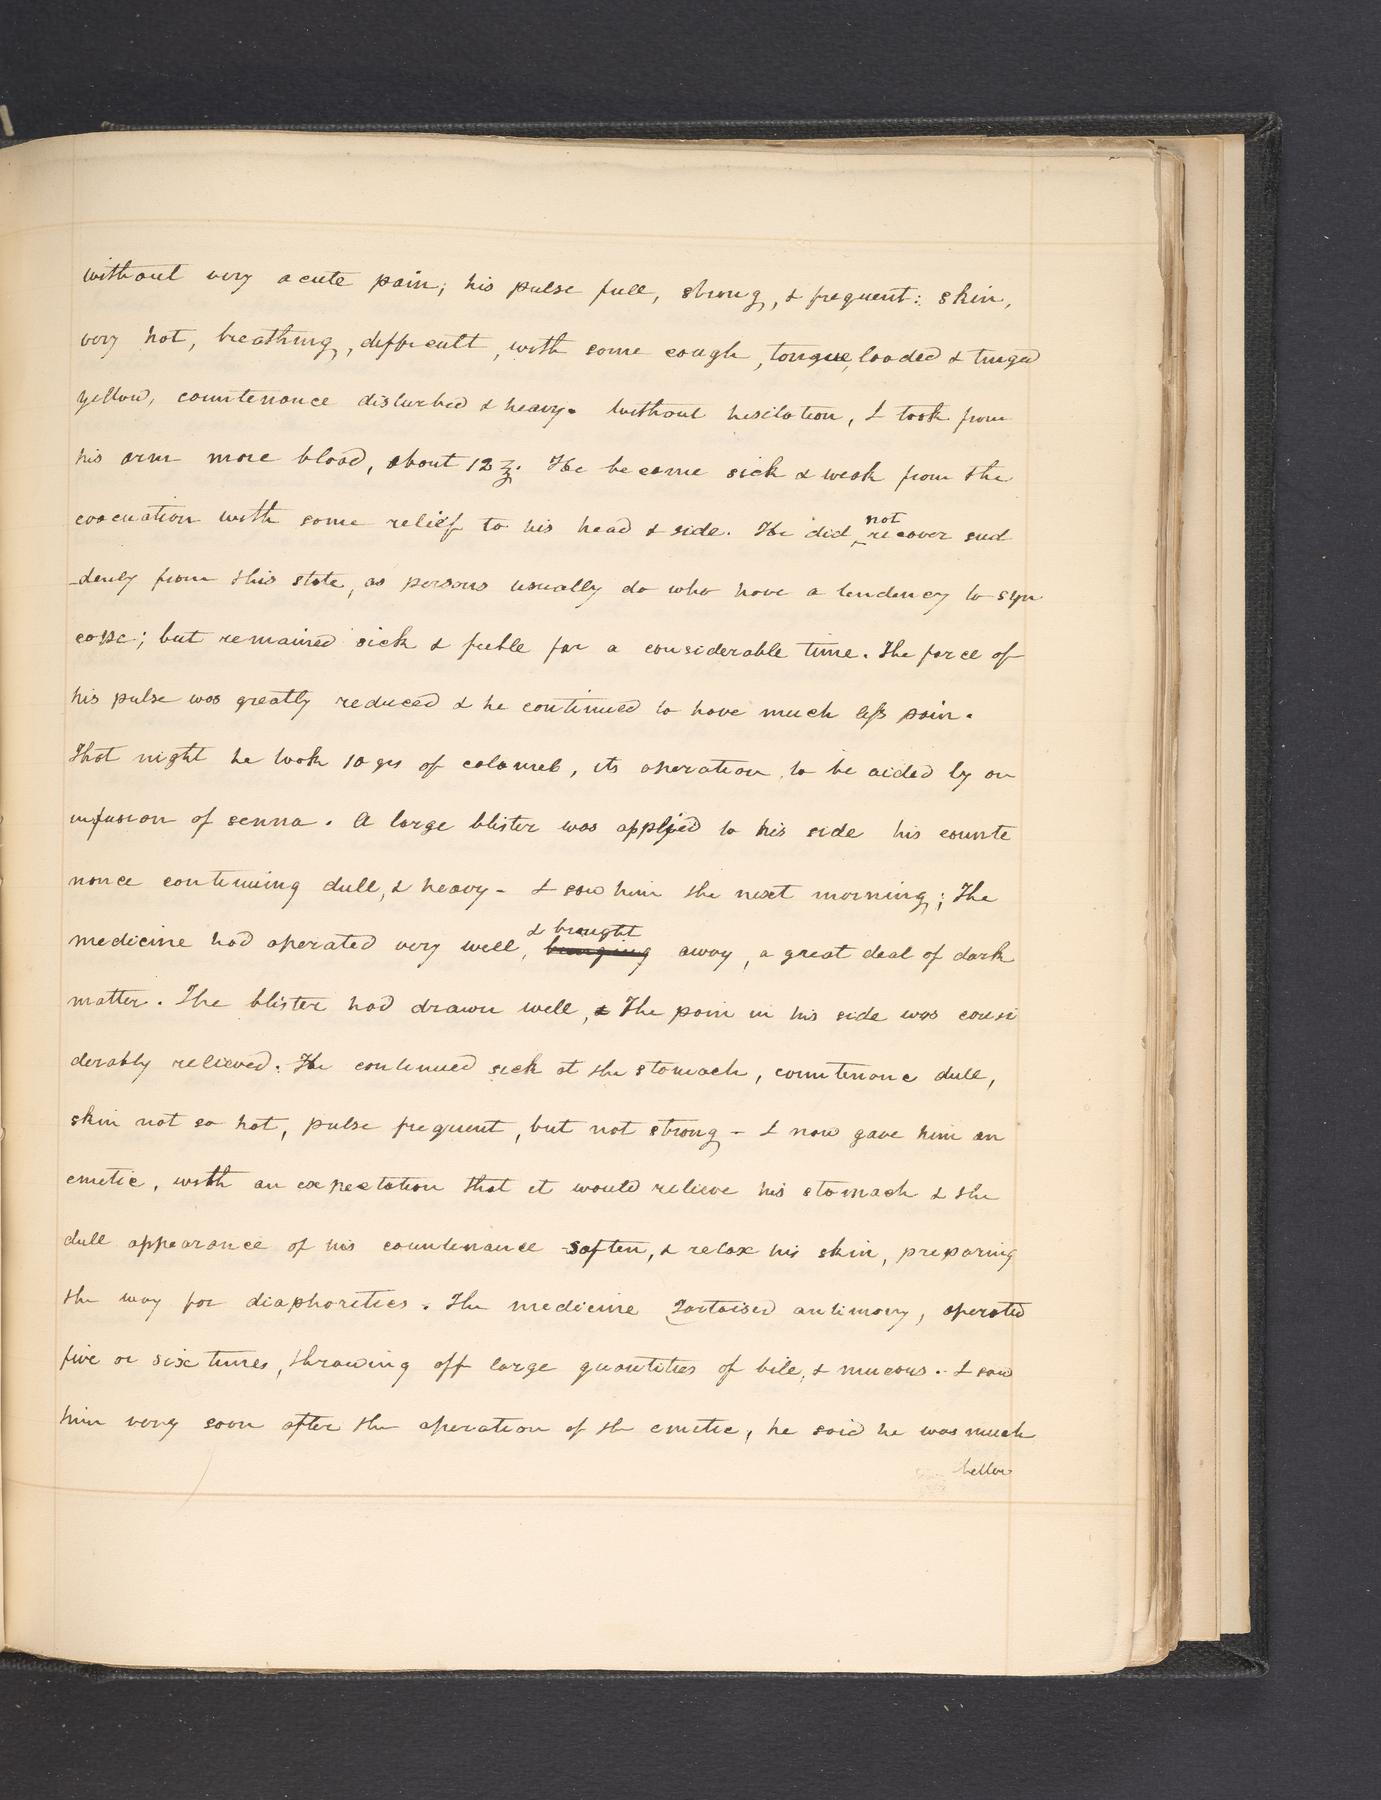 without very acute pain; his pulse full, strong, & frequent: skin,
very hot, breathing, difficult, with some cough, tongue, loaded & tinged
yellow, countenance disturbed & heavy. Without hesitation, I took from
his arm more blood, about 12 ℥. He became sick & weak from the
evacuation with some relief to his head & side. He did not recover sud
-denly from this state, as persons usually do who have a tendency to syn
cope; but remained sick & feeble for a considerable time. The force of
his pulse was greatly reduced & he continued to have much less pain.
That night he took 10 grs of calomel, its operation to be aided by an
infusion of senna. A large blister was applied to his side his counte
nance continuing dull, & heavy - I saw him the next morning; The
medicine had operated very well, & brought bringing away, a great deal of dark
matter. The blister had drawn well, & The pain in his side was consi
derably relieved. He continued sick at the stomach, countenance dull,
skin not so hot, pulse frequent, but not strong - I now gave him an
emetic, with an expectation that it would relieve his stomach & the
dull appearance of his countenance soften, & relax his skin, preparing
the way for diaphoretics. The medicine Tartarised antimony, operated
five or six times, throwing off large quantities of bile, & mucous. I saw
him very soon after the operation of the emetic, he said he was much
better